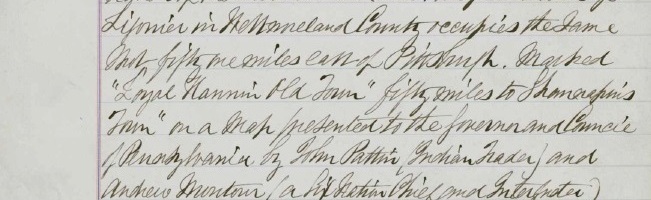 Ligonier in Westmoreland County occupies the Same
Spot fifty one miles east of Pittsburgh. Marked
"Loyal Hannin Old Town" fifty miles to Shanapin's
Town" on a Map presented to the Governor and Council
of Pennsylvania by John Pattin (Indian Trader) and
Andrew Montour (a Six Nation Chief and Interpreter)